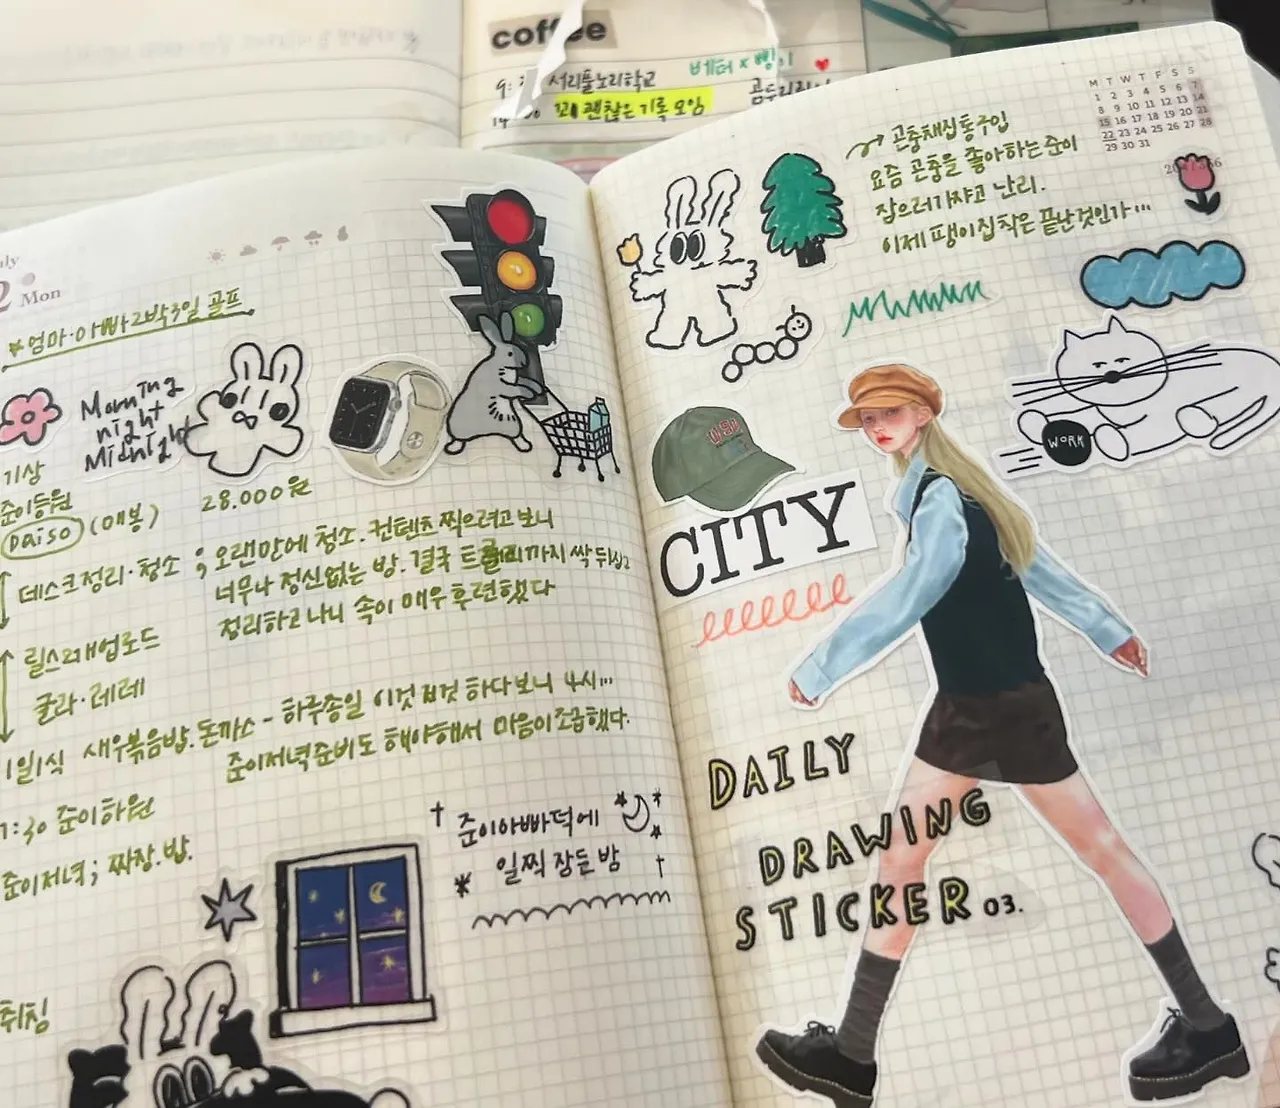 coffee
서리풀노리학교
베더 x 삥이
꾀 괜찮은 기록 모임
Mon
엄마·아빠 2박3일 골프
Morning
night
Midnight
기상
준이등원
Daiso (애봉)
28.000원
데스크정리·청소 ; 오랜만에 청소. 컨텐츠 찍으려고 보니
너무나 정신없는 방. 결국 까지 싹 뒤집고
정리하고 나니 속이 매우 후련했다
릴스2개업로드
귤라·레레
1일1식 새우볶음밥.돈까스 - 하루종일 이것저것 하다보니 4시...
준이저녁준비도 해야해서 마음이 조급했다.
:30 준이하원
준이저녁; 짜장.밥.
준이아빠덕에
일찍 잠든 밤
취침
곤충채집통구입
요즘 곤충을 좋아하는 준이
잡으러가자고 난리.
이제 팽이집착은 끝난것인가...
M T W T F S S
1 2 3 4 5 6 7
8 9 10 11 12 13 14
15 16 17 18 19 20 21
22 23 24 25 26 27 28
29 30 31
WORK
CITY
DAILY
DRAWING
STICKER 03.